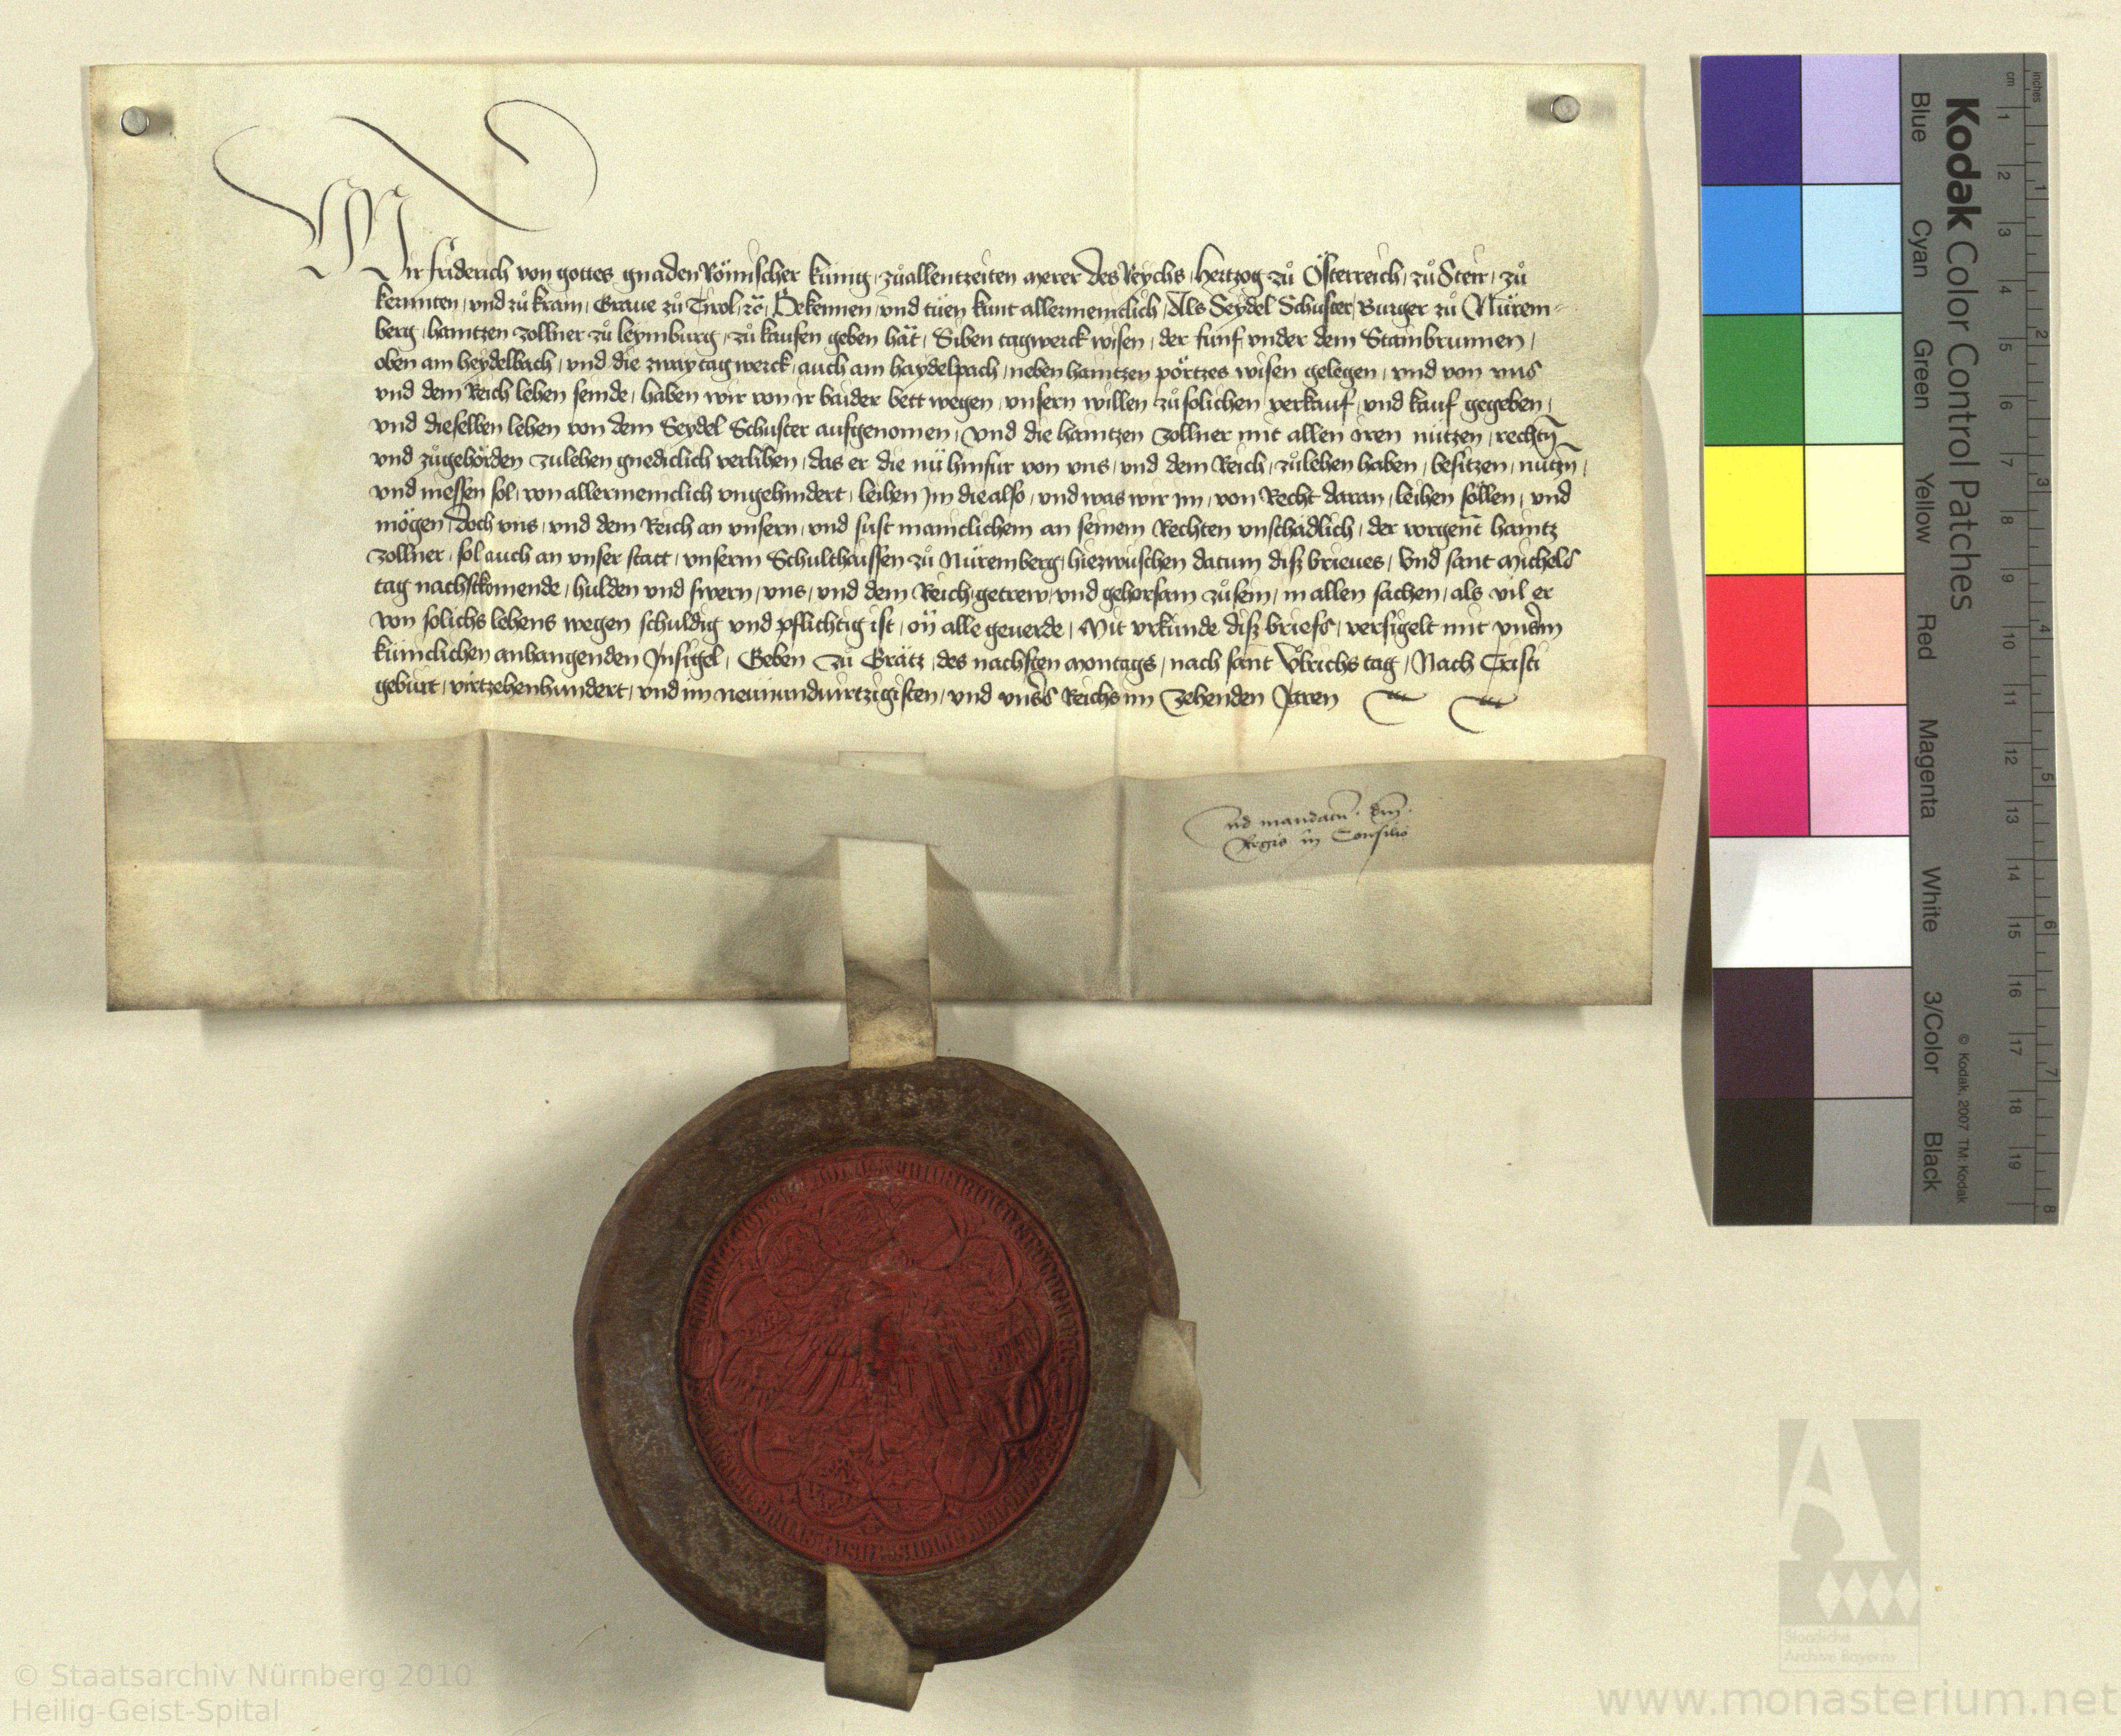 Wir friderich von gottes gnaden Römischer kunig, zůallentzeiten merer des Reychs, hertzog zů Österreich, zů Steir, zů
kernnten, vnd zů krain, Graue zů Tirol, ꝛc̄, Bekennen, vnd tůen kunt allermeniclich, Als Seydel Schuster, Burger zů Nurem-
berg, hanntzen zollner zů leymburg, zů kaufen geben hat, Siben tagwerck wisen, der funf vnder dem Stainbrunnen,
oben am heydelbach, vnd die zway tagwerck, auch am haydelpach, neben hanntzen pörtzes wisen gelegen, vnd von vns
vnd dem Reich lehen seinde, haben wir von ir baider bett wegen, vnsern willen zů solichen verkauf, vnd kauf gegeben,
vnd dieselben lehen von dem Seydel Schuster aufgenomen, vnd die hanntzen zollner mit allen iren nutzen, rechtn̄
vnd zůgehörden zulehen gnediclich verlihen, das er die nu hinfur von vns, vnd dem Reich, zůlehen haben, besitzen, nutzn̄,
vnd niessen sol, von allermeniclich vngehindert, leihen Im die also, vnd was wir im, von Recht daran, leihen sollen, vnd
mögen, doch vns, vnd dem Reich an vnsern, vnd sust maniclichem an seinem Rechten vnschedlich, der vorgen̄t hanntz
zollner, sol auch an vnser statt, vnserm Schulthaissen zů Nuremberg, hiezwuschen datum diß brieues, Vnd sant Michels
tag nachstkomende, hulden vnd swern, vns, vnd dem Reich, getrew, vnd gehorsam zů sein, in allen sachen, als vil er
von solichs lehens wegen schuldig vnd pflichtig ist, on alle geuerde, Mit vrkunde diß briefs, versigelt mit vnserm
kuniclichen anhangenden Insigel, Geben zů Grätz, des nachsten montags, nach sant Vlrichs tag, Nach Cristi
geburt, virtzehenhundert, vnd im neununduirtzigisten, vnd vnsers Reichs im zehenden Jaren
Ad mandatū dn̄i
Regis in Consilio
Kodak Color Control Patches
Blue Cyan Green Yellow Red Magenta White 3/Color Black
© Kodak, 2007 TM: Kodak
inches 1 2 3 4 5 6 7 8
cm 1 2 3 4 5 6 7 8 9 10 11 12 13 14 15 16 17 18 19
Staatliche
Archive Bayerns
© Staatsarchiv Nürnberg 2010
Heilig-Geist-Spital
www.monasterium.net